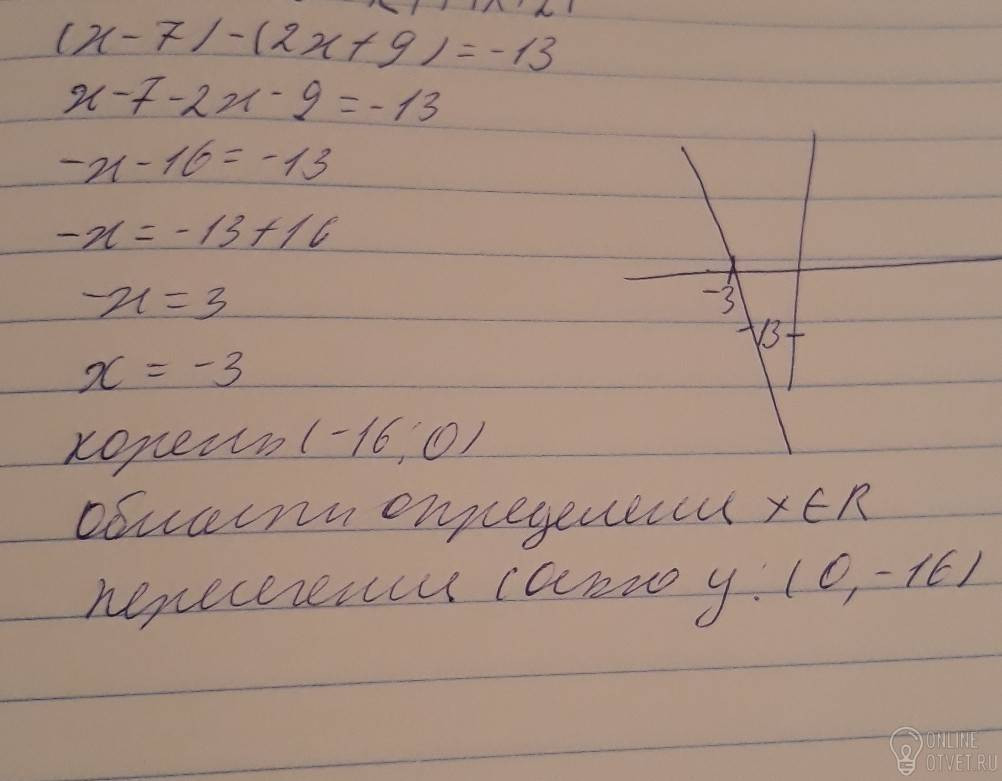 (x-7)-(2x+9)=-13
x-7-2x-9=-13
-x-16=-13
-x=-13+16
-x=3
x=-3
-3
-13
корень (-16; 0)
области определения x∈R
пересечения с осью y: (0, -16)
ONLINE
OTVET.RU